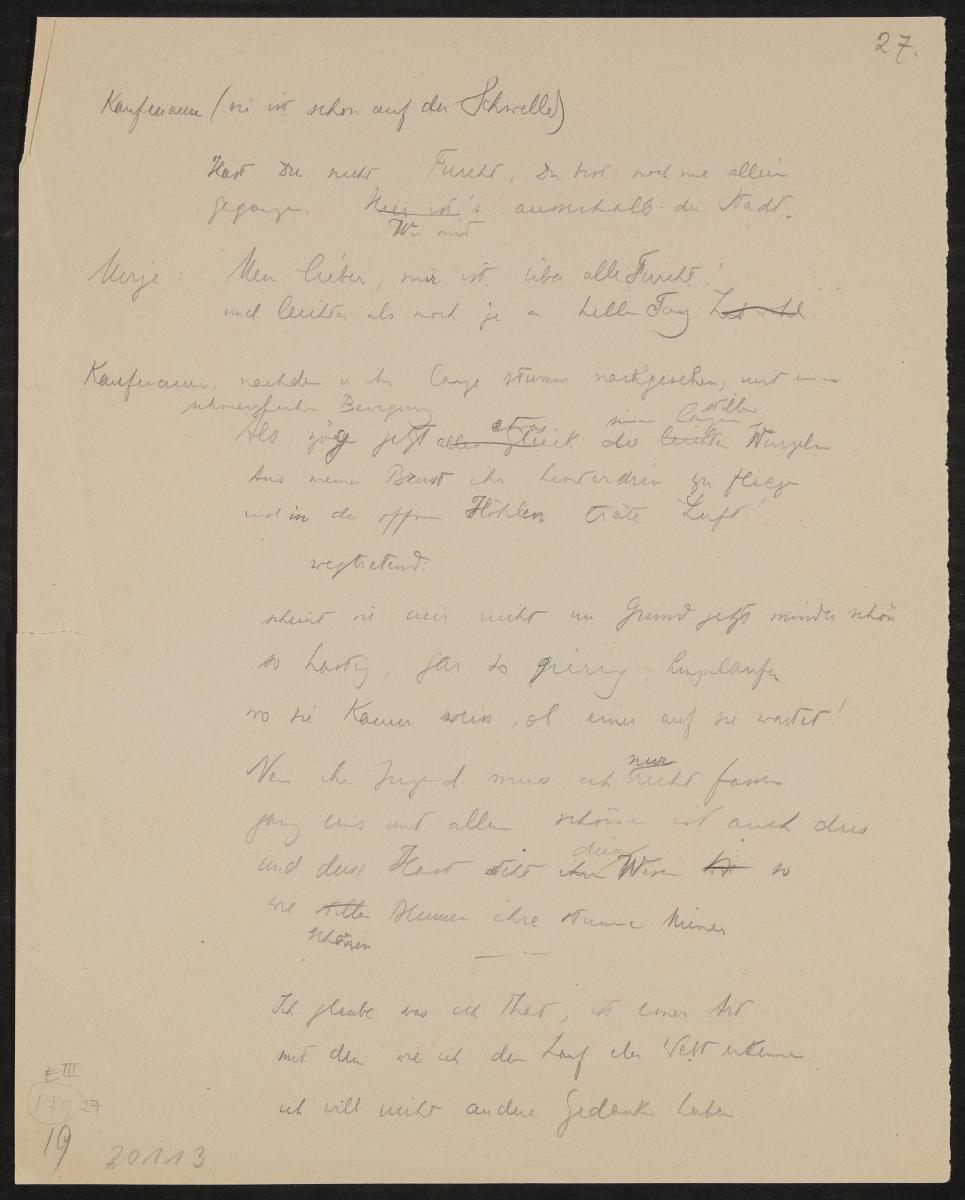 27.
Kaufmann (sie ist schon auf der Schwelle)
Hast Du nicht Furcht, Du bist noch nie allein
gegangen. Hier ist's ausserhalb der Stadt.
Wir sind
Mein lieber, mir ist über alle Furcht!
und leichter als noch je a heller Tag
Kaufmann, nachdem er ihr lange stumm nachgesehen, mit einer
schmerzlichen Bewegung
etwas seine langen stillen
Als zög jetzt alles Glück die leichten Wurzeln
Aus meiner Brust ihr hinterdrein zu fliegen
und in die offnen Höhlen träte Luft!
wegtretend:
scheint sie mir nicht im Grund jetzt minder schön
so hastig, gar so gierig hinzulaufen
wo sie Kaum weiss, ob einer auf sie wartet!
nur
Nein ihre Jugend muss ich recht fassen
ganz eins mit allem schönen ist auch dies
dieser
und diese Hast steht ihrem Wesen so
wie stillen Blumen ihre stumme Miene
schönen
Ich glaube was ich that, ist einer Art
mit dem wie ich den Lauf der Welt erkenne
ich will nicht andere Gedanken haben
E III
179 27
19
20113